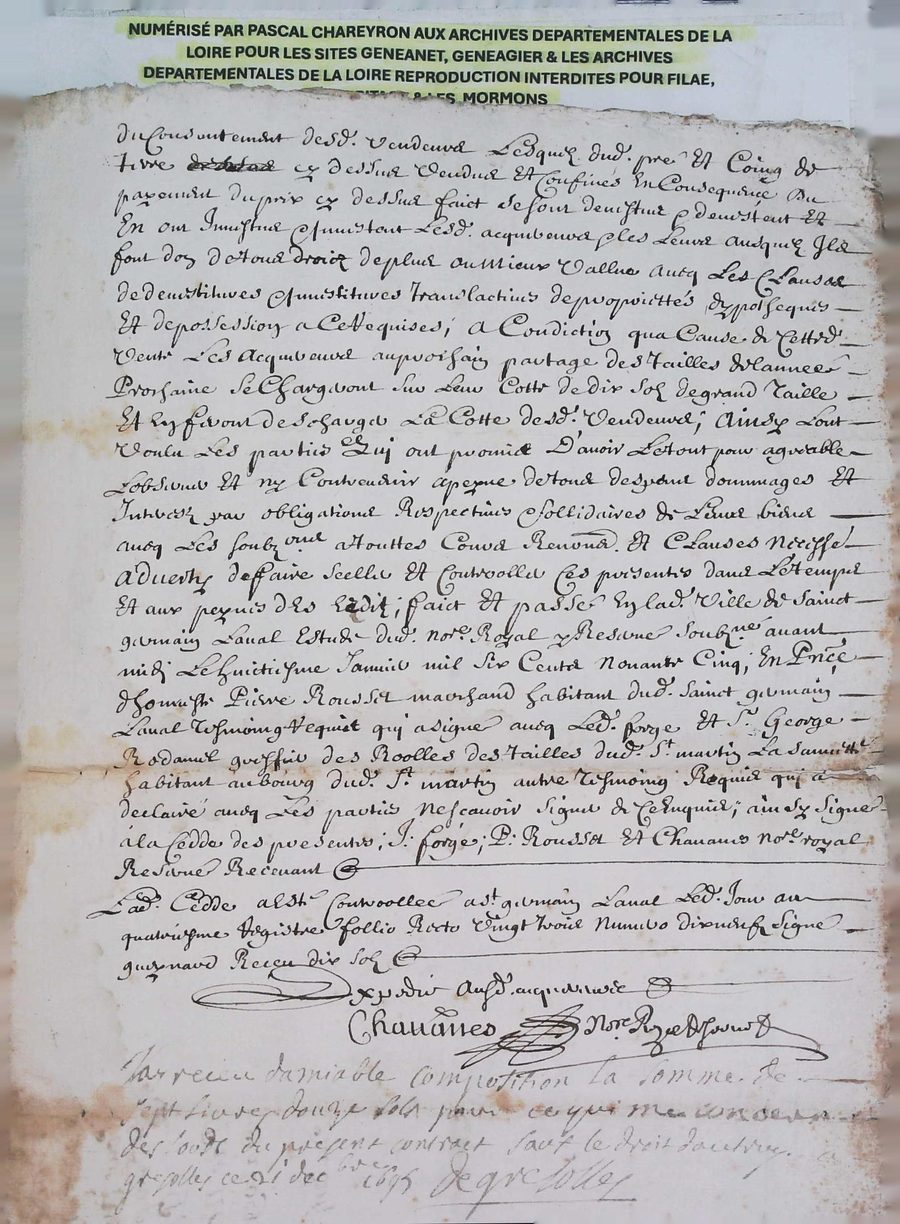 NUMÉRISÉ PAR PASCAL CHAREYRON AUX ARCHIVES DEPARTEMENTALES DE LA
LOIRE POUR LES SITES GENEANET, GENEAGIER & LES ARCHIVES
DEPARTEMENTALES DE LA LOIRE REPRODUCTION INTERDITES POUR FILAE,
& LES MORMONS
du Consentement desd. Vendeurs Lesquelz dud. pré Et Coing de
terre cy dessus Vendus Et Confinés En Consequence du
payement du prix cy dessus faict se sont demistus et demestent Et
En ont Jnuistus et Jnuistent Lesd. acquereurs et les Leurs ausquelz Jls
font don de tous droictz de plus ou Mieux Vallue aueq Les Clauses
de deuestitures et Jnuestitures translactiues de proprietés d'ypotheques
Et de possession a Ce Requises; A Condiction qua Cause de Cetted.
Vente Les Acquereurs au prochain partage des tailles de lannee
Prochaine se Chargeront sur Leur Cotte de dix solz de grand taille
Et En feront descharger La Cotte desd. Vendeurs; Ainsy Lont
Voulu Les parties Qui ont promis D'auoir Le tout pour agreable
Lobseruer Et ny Contreuenir a peyne de tous despens dommages Et
Interestz par obligations Respectiues et sollidaires de Leurs biens
aueq Les soubz.ons a touttes Cours Renon.s et Clauses necesse.
aduertys de ffaire sceller et Controoller Ces presentes dans Le temps
Et aux peynes des Edit; faict Et passé En lad. Ville de Sainct
germain Laual Estude dud. nore. Royal Reserué soubz.né auant
midi Le huictiesme Januier mil six Cents nonante Cinq; En Pnce.
dhoneste Pierre Rousset marchand habitant dud. Sainct germain
Laual tesmoing Requis qui a signé aueq Led. forge et Sr. George
Rodamel greffier des Roolles des tailles dud. St. martin La Sauueté
habitant au bourg dud. St. martin autre tesmoing Requis qui a
declairé aueq Les parties Ne scauoir signer de Ce Enquis; ainsy signé
a la Cedde des presentes; J. forge; P. Rousset et Chauanes nore. royal
Reserué Receuant
Lad. Cedde a Esté Controollee a St. germain Laual Led. Jour au
quatriesme Registre follio Recto Vingt trois Numero dix neuf signé
gueynard Receu dix solz
Expedié Ausd. acquereurs
Chauanes Nore. Royal Reserué
Jay receu damiable composition la somme de
sept liures douze sols pour ce qui me concerne
des lods du present contract sauf le droit dautruy
gresolles ce 21 decbre 1695 Degresolles